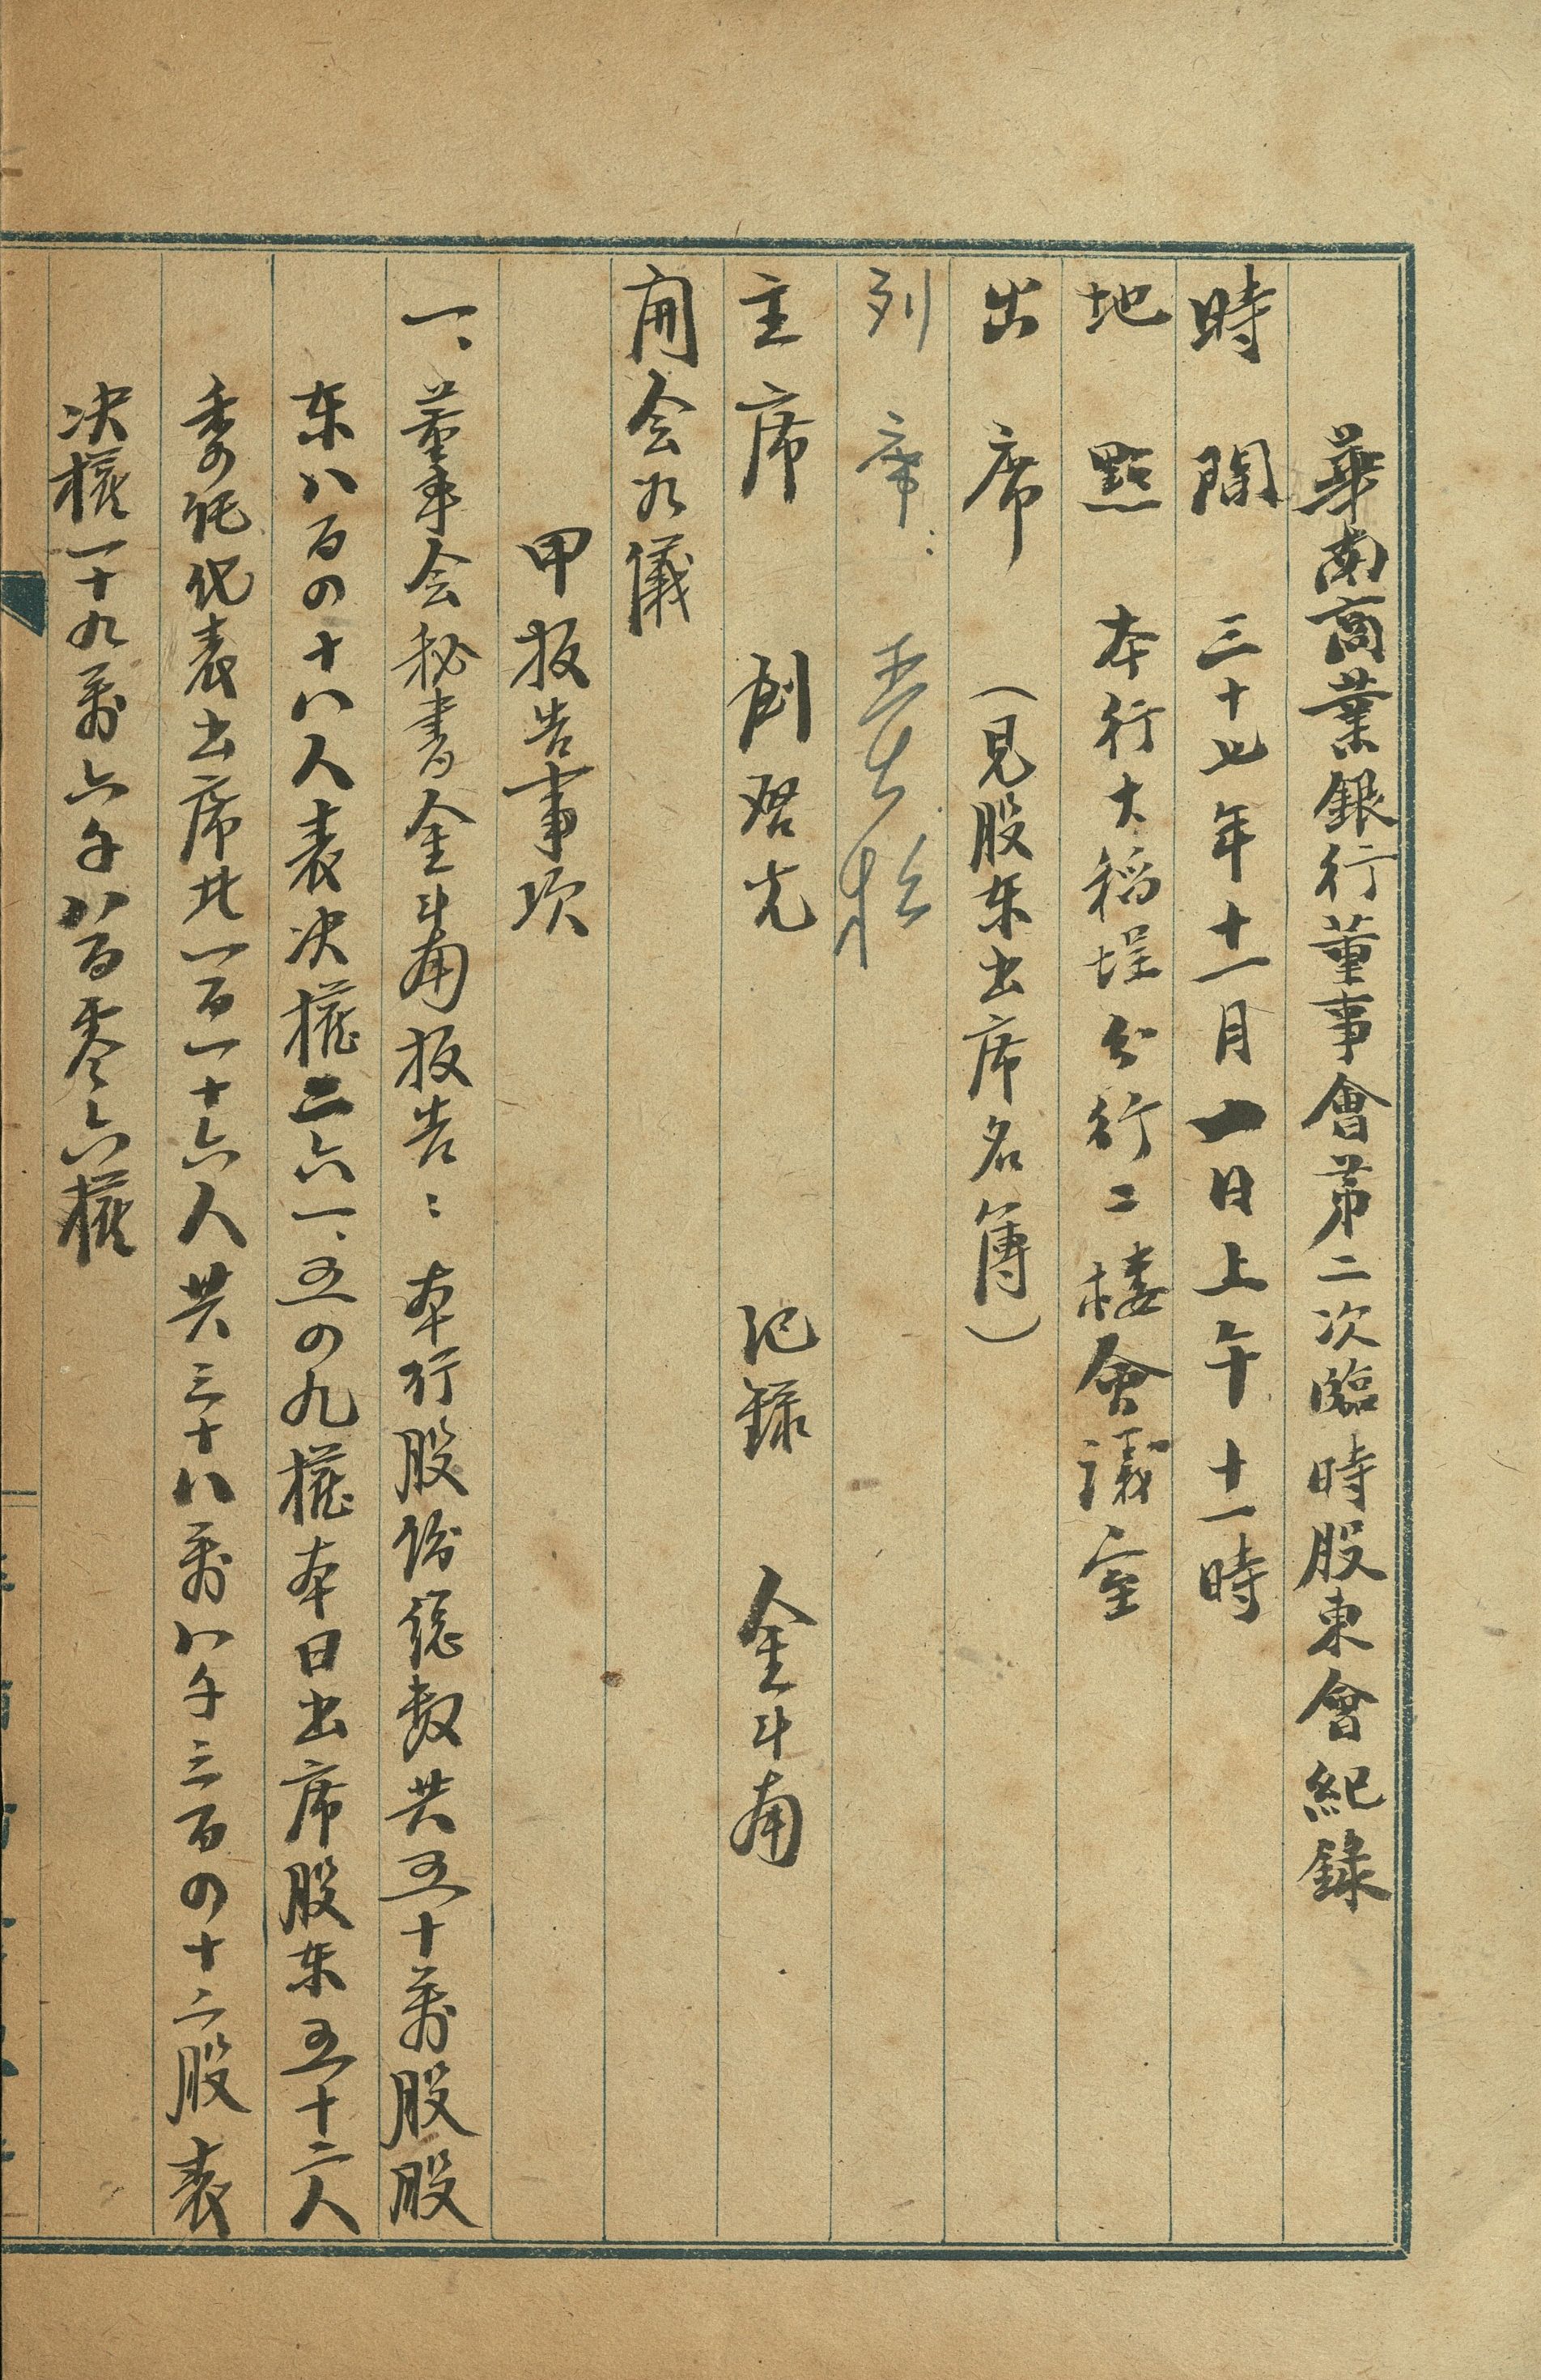 華南商業銀行董事會第二次臨時股東會紀錄
時間 三十七年十一月一日上午十一時
地點 本行大稻埕分行二楼會議室
出席 (見股东出席名簿)
列席:
主席 刘啓光 记録 金斗南
開会如儀
甲 报告事项
一、董事会秘書金斗南报告:本行股份總数共五十萬股股
东八百四十八人表决權二六一、五四九權本日出席股东五十二人
委託代表出席共一百一十六人共三十八萬八千三百四十二股表
决權一十九萬六千八百零六權